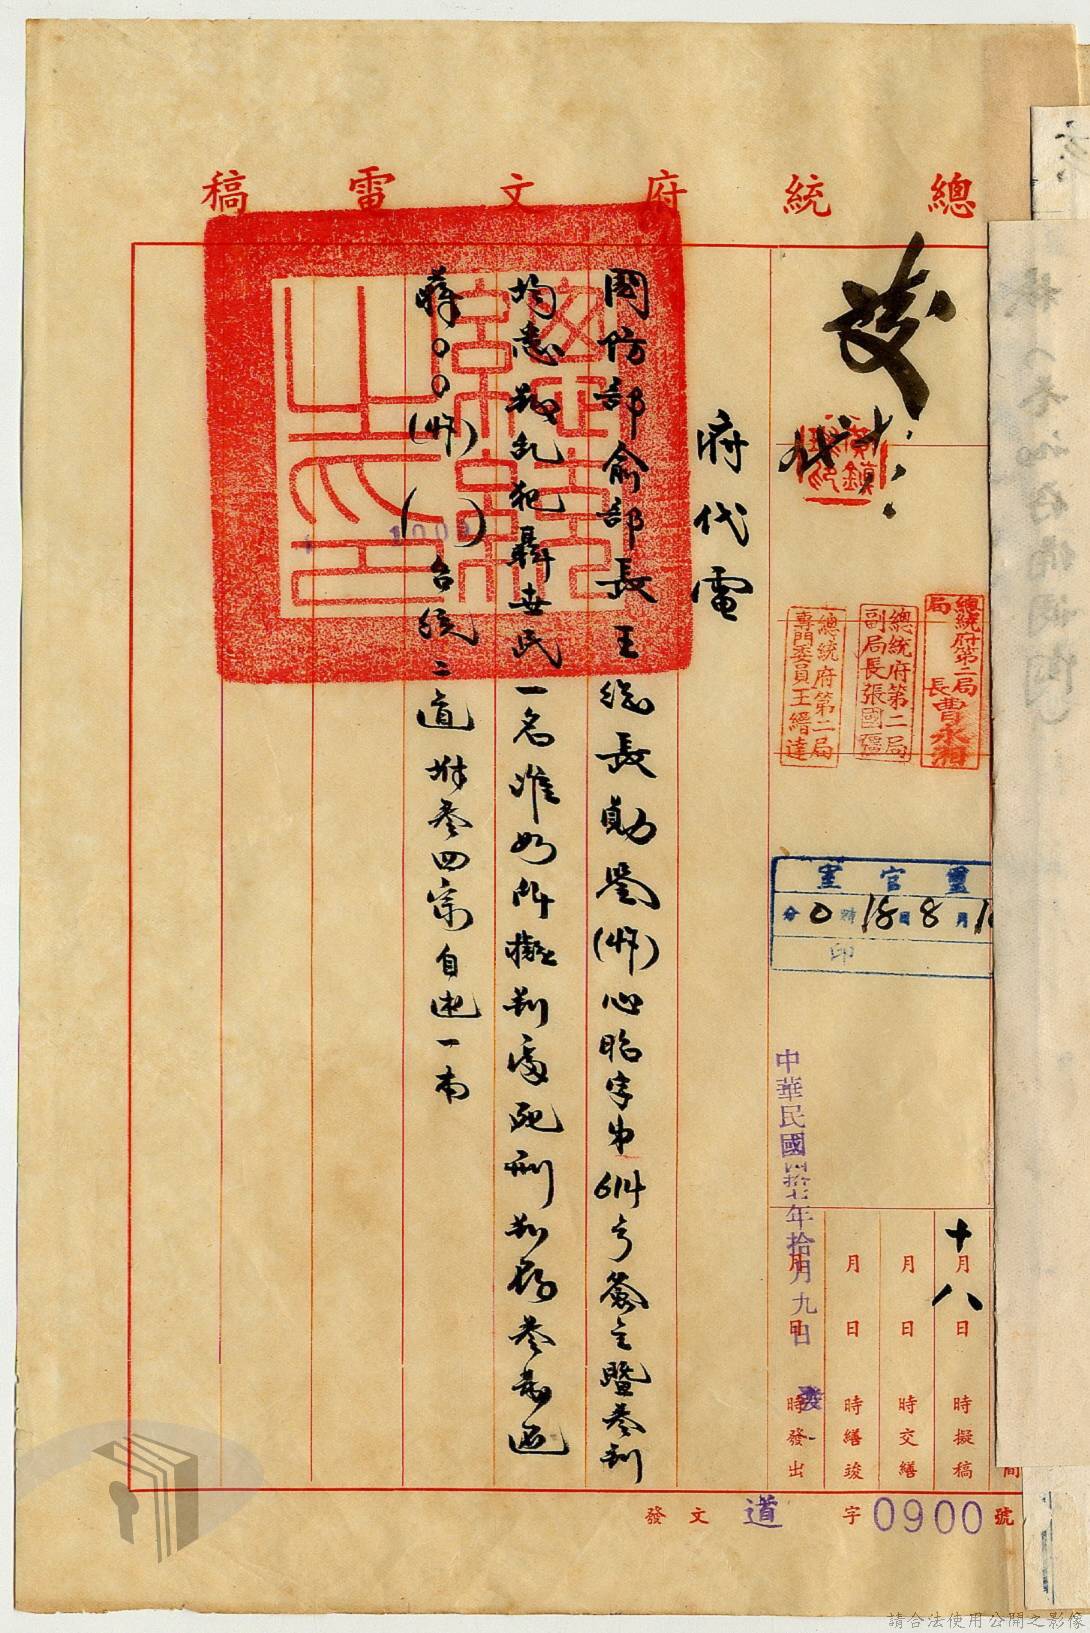 總統府文電稿
發
代
總統府第二局局長曹永湘
總統府第二局副局長張國疆
總統府第二局專門委員王縉達
璽官室
月8日18時0分
印
十月八日 時擬稿
月 日 時交繕
月 日 時繕竣
月 日 時發出
中華民國四拾七年拾月九日 發
府代電
國防部俞部長王總長勛鑒()心昭字第614号簽呈暨卷判
均悉叛亂犯聶世民一名准如所擬判處死刑判發卷
蔣○○()()台統二道 卷四宗自述一本
1009
發文 道 字 0900 號
請合法使用公開之影像